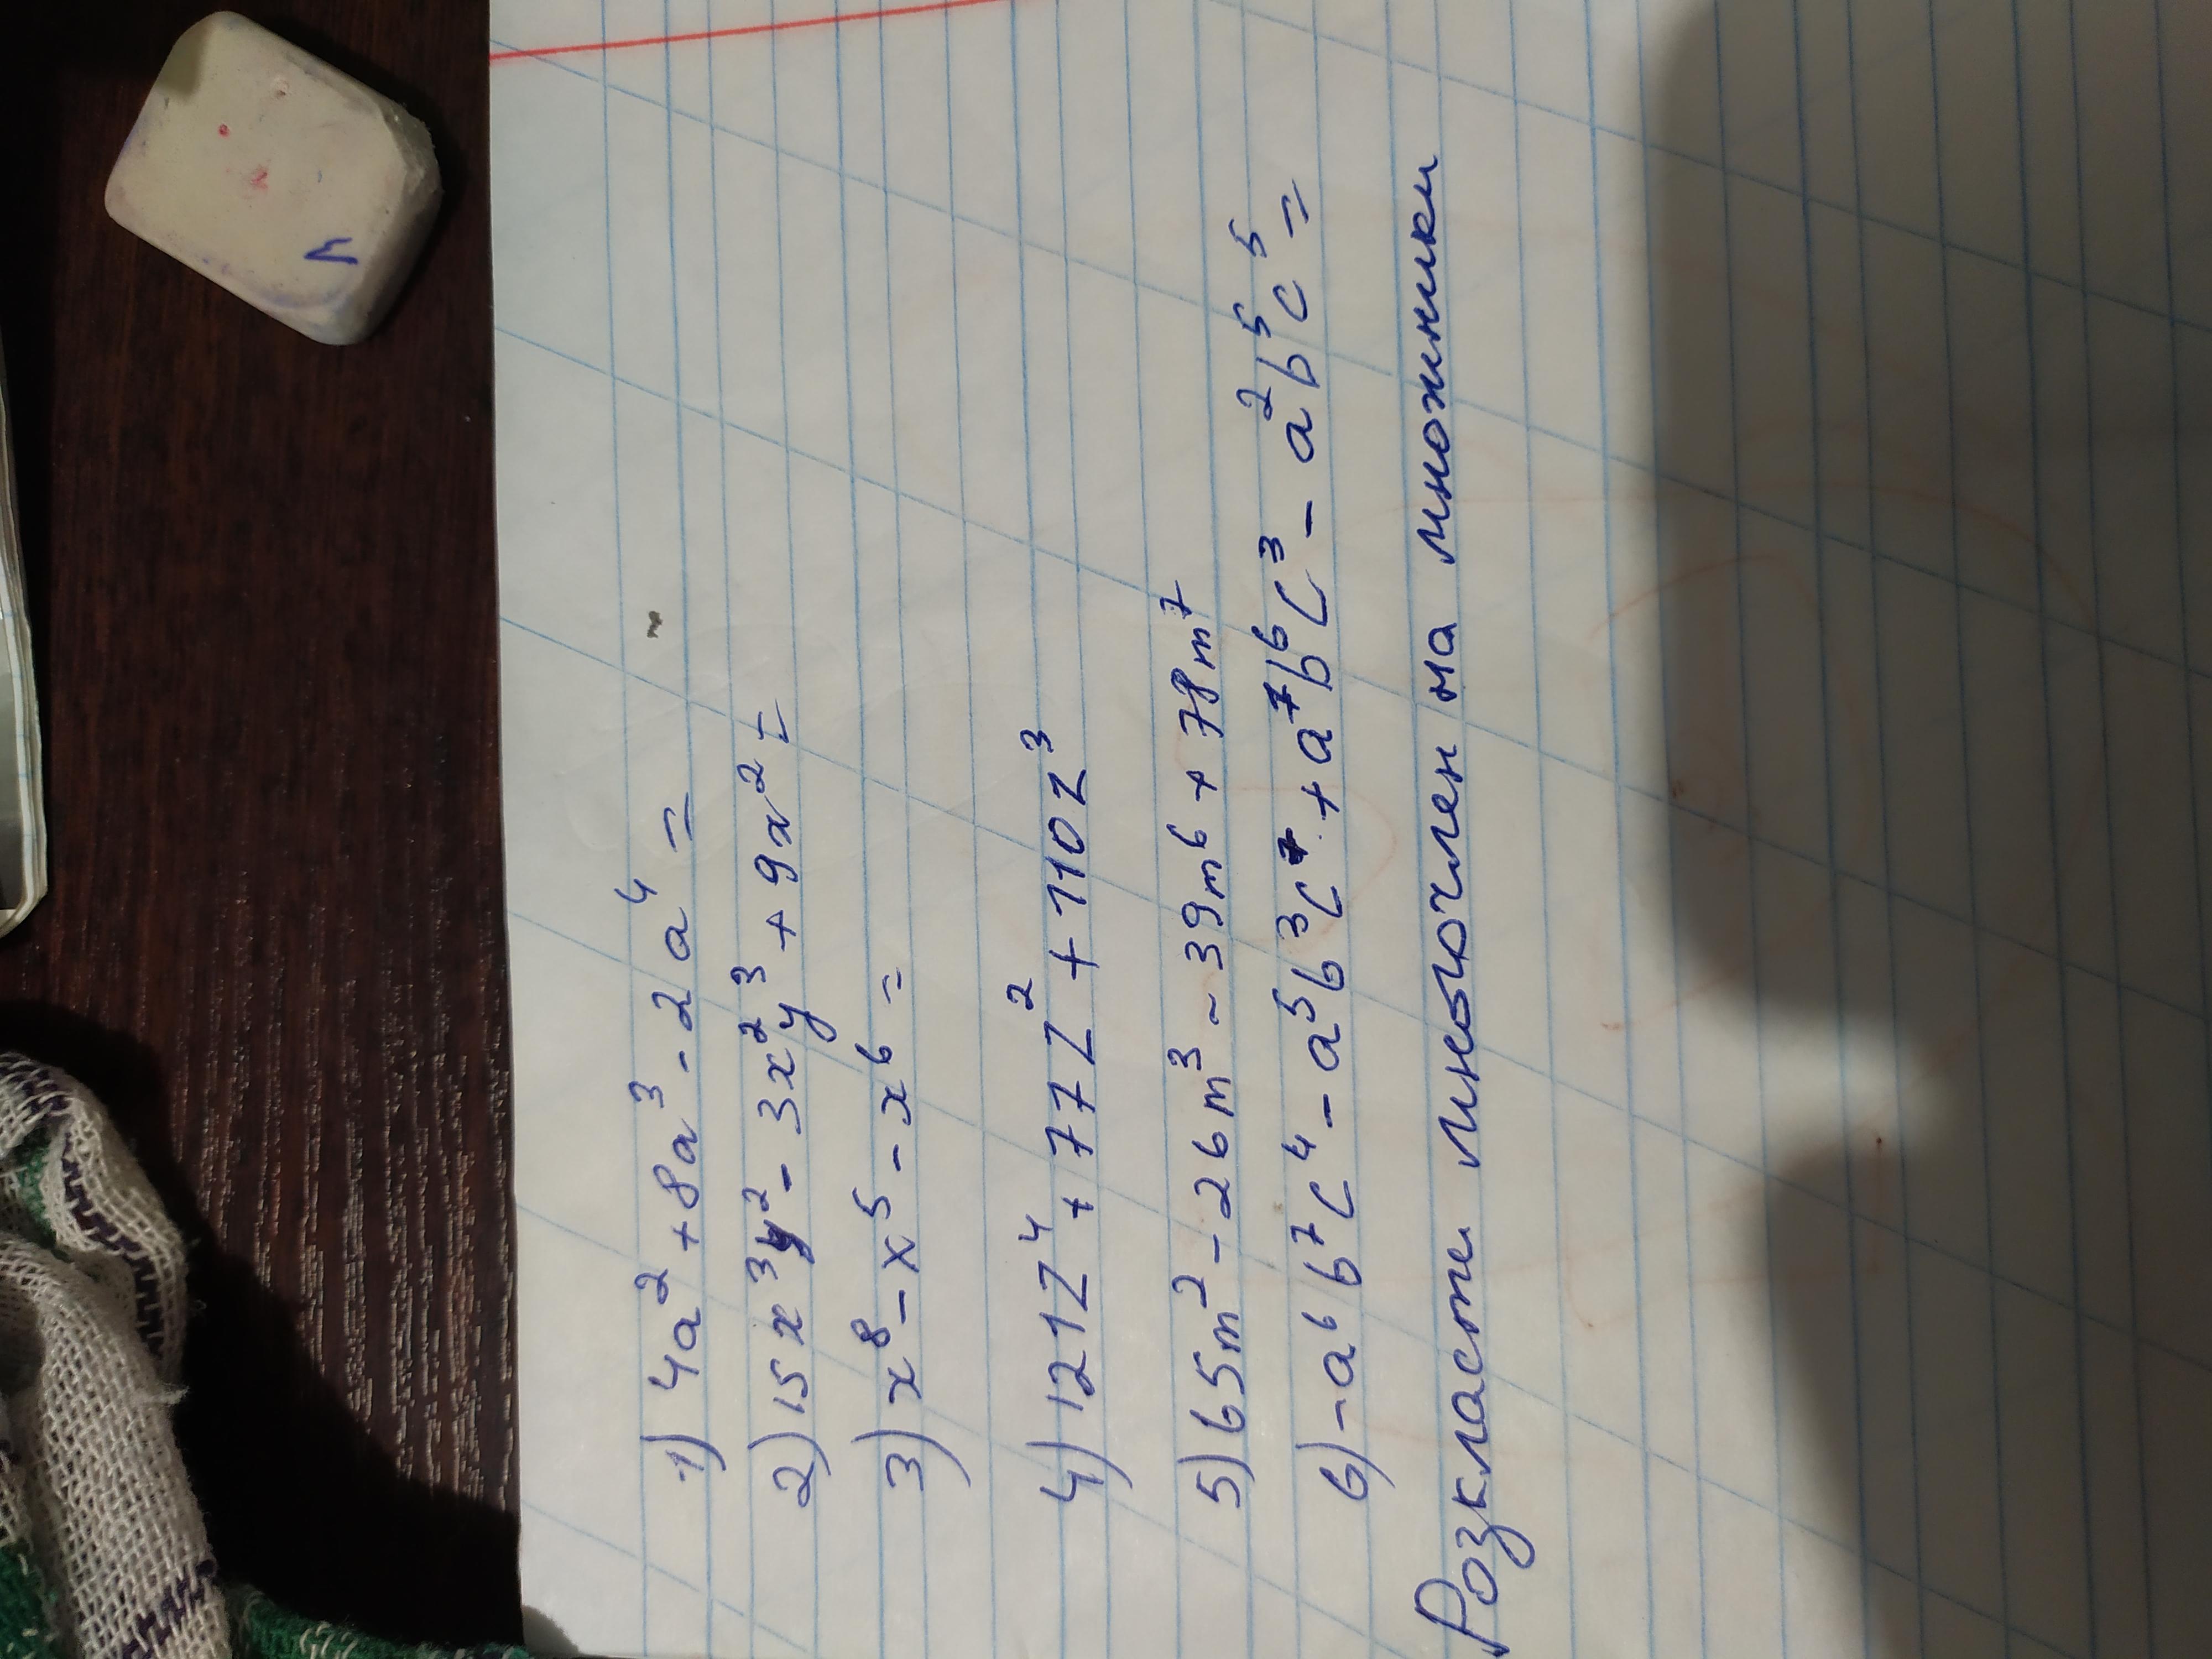 1) 4a² + 8a³ - 2a⁴ =
2) 15x³y² - 3x²y³ + 9x² =
3) x⁸ - x⁵ - x⁶ =
4) 121z⁴ + 77z² + 110z³
5) 65m² - 26m³ - 39m⁶ + 78m⁷
6) -a⁶b⁷c⁴ - a⁵b³c⁷ + a⁷b⁶c³ - a²b⁵c⁵ =
Розкласти многочлен на множники